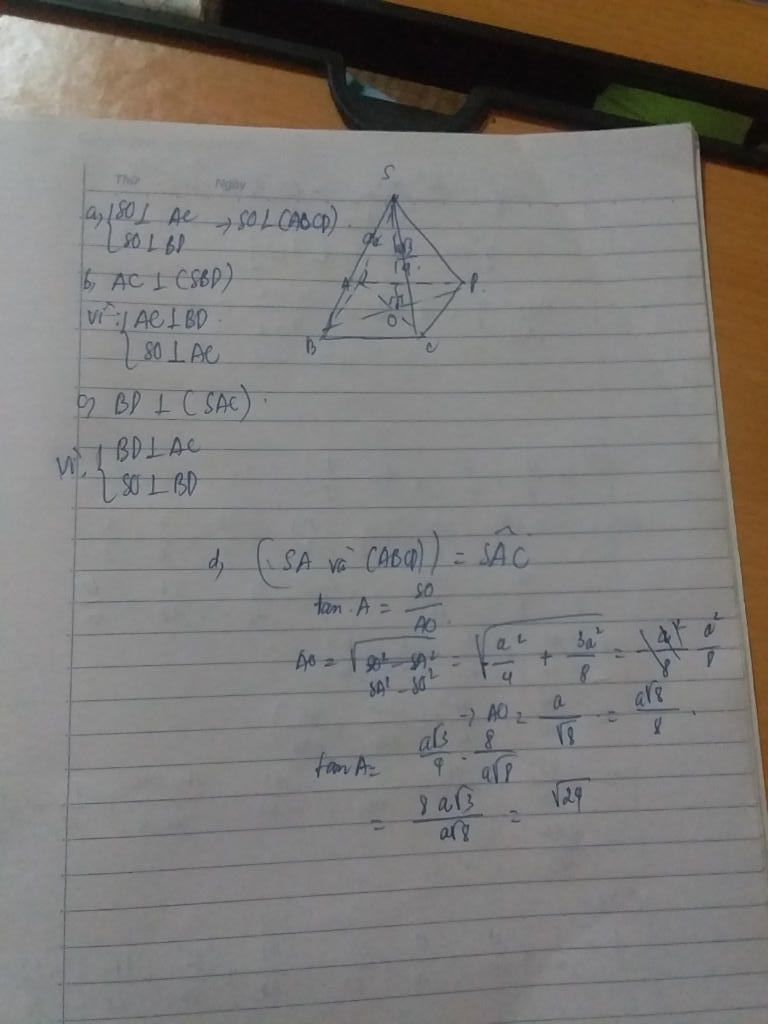 Thứ Ngày
S
a, { SO ⊥ AC → SO ⊥ (ABCD)
SO ⊥ BD
b, AC ⊥ (SBD)
A D
vì: { AC ⊥ BD
SO ⊥ AC
O
B C
c, BD ⊥ (SAC).
vì: { BD ⊥ AC
SO ⊥ BD
d, (SA và (ABCD)) = SÂC
tan A = SO/AO
AO = √(SA² - SO²) = √(a²/4 + 3a²/8) = a²/8
→ AO = a/√8 = a√8/8.
tan A = a√3/9 . 8/a√8
= 8a√3/a√8 = √24